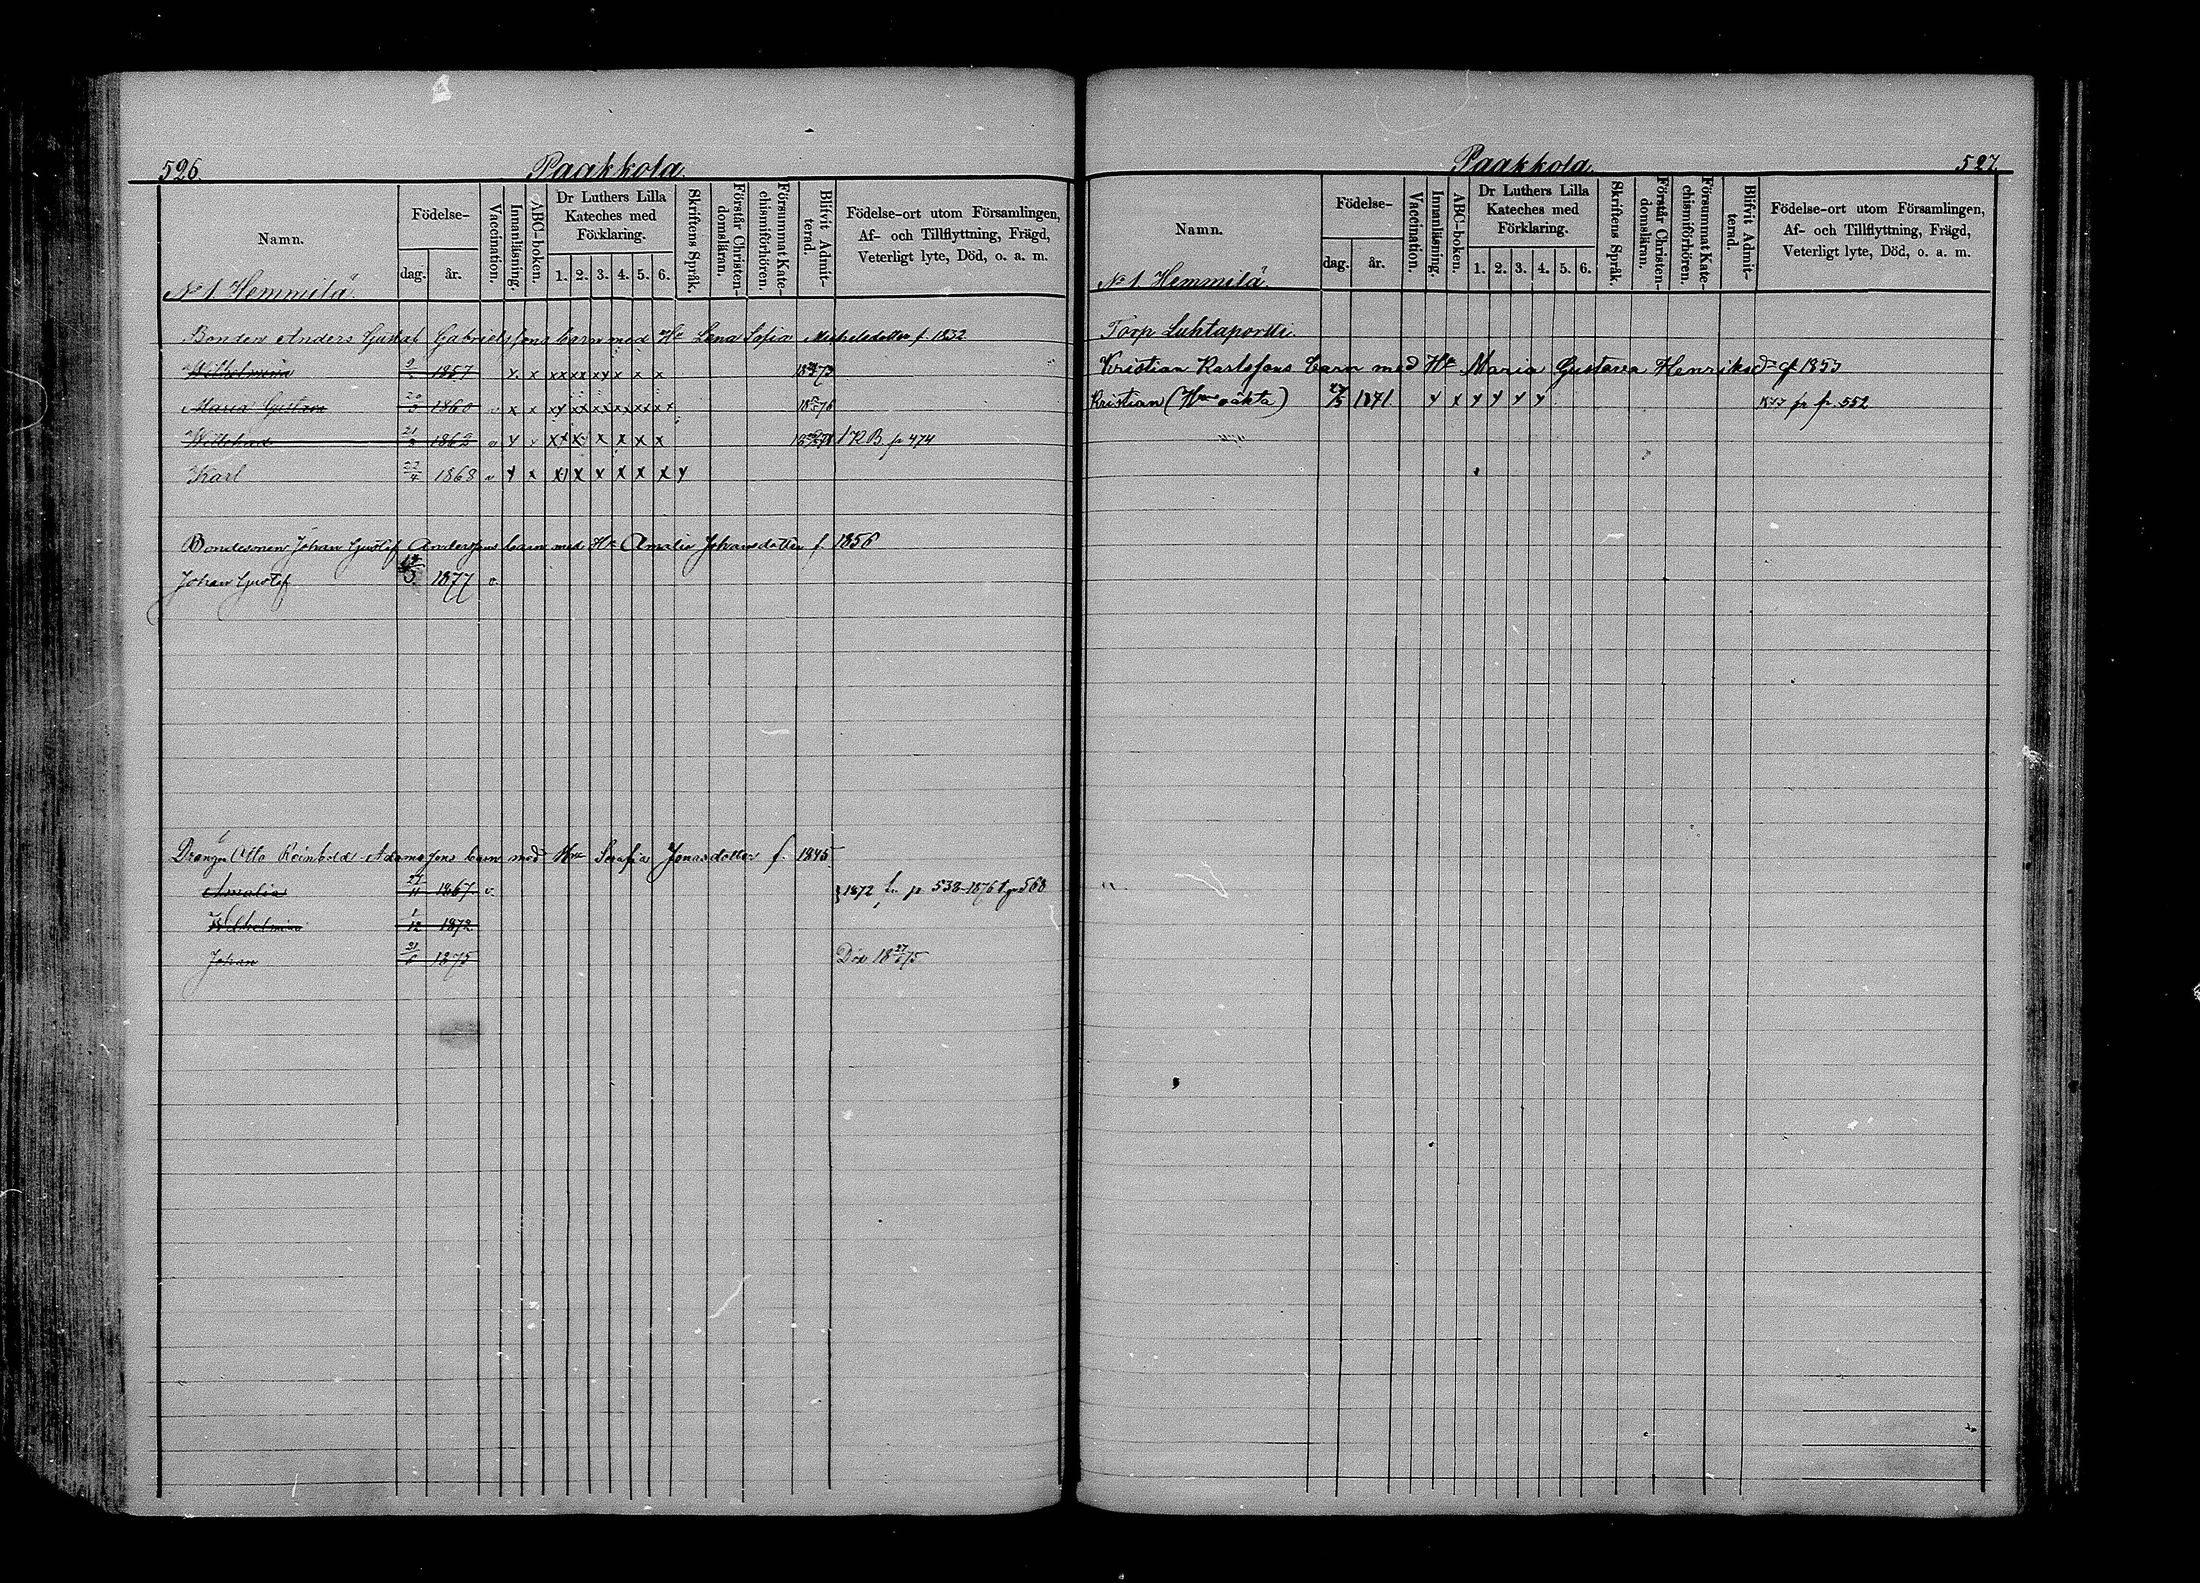 526. Paakkola.
Namn. Födelse- dag. år. Vaccination. Innanläsning. ABC-boken. Dr Luthers Lilla Kateches med Förklaring. 1. 2. 3. 4. 5. 6. Skriftens Språk. Förstår Christen-domsläran. Försummat Kate-chismiförhören. Blifvit Admit-terad. Födelse-ort utom Församlingen, Af- och Tillflyttning, Frägd, Veterligt lyte, Död, o. a. m.
No 1 Hemmilä.
Bonden Anders Gustaf Gabrielssons barn med Hu Lena Sofia Michelsdotter f. 1832
Wilhelmina 1857 x x x x x x x x x
Maria Gustava 1860 v x x x x x x x x
1862 v x x x x x x x x 1 KB p 474
Karl 22/4 1868 v x x x x x x x x x
Bondesonen Johan Gustaf Anderssons barn med Hu Amalia Johansdotter f. 1856
Johan Gustaf 1877 v.
Drängen Otto Reinhold Adamssons barn med Hu Serafia Jonasdotter f. 1845
Amalia 1867 v. 1872 fr. p 538 1876 t. p 568
Wilhelmina 1/12 1872
Johan 21/6 1875 Död 18 27/6 75
Paakkola. 527.
Namn. Födelse- dag. år. Vaccination. Innanläsning. ABC-boken. Dr Luthers Lilla Kateches med Förklaring. 1. 2. 3. 4. 5. 6. Skriftens Språk. Förstår Christen-domsläran. Försummat Kate-chismiförhören. Blifvit Admit-terad. Födelse-ort utom Församlingen, Af- och Tillflyttning, Frägd, Veterligt lyte, Död, o. a. m.
No 1. Hemmilä.
Torp Luhtaportti.
Kristian Karlssons barn med Hu Maria Gustava Henriksdr f 1853
Kristian (Hus oäkta) 1871. x x x x x x fr p. 552